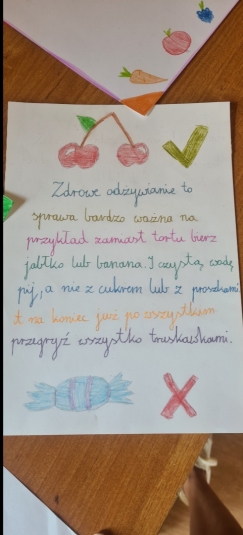 Zdrowe odżywianie to
sprawa bardzo ważna na
przykład zamiast tortu bierz
jabłko lub banana. I czystą wodę
pij, a nie z cukrem lub z proszkami
A na koniec już po wszystkim
przegryź wszystko truskawkami.